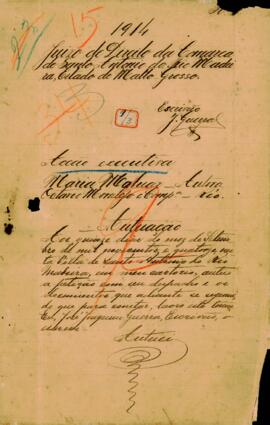 15
1914
Juizo de Direito da Comarca
de Santo Antonio do Rio Madei
ra, Estado de Matto Grosso.
Escrivão
J. Guerra
1/2
Acção executiva
Maria Autora
Octavio & Comp.ª Réo
Autuação
Aos quinze dias do mez de Setem
bro de mil novecentos e quatorze, nes
ta Villa de Santo Antonio do Rio
Madeira, em meu cartorio, autuo
a petição com seu despacho e os
documentos que adiante se seguem;
do que para constar, lavro este termo.
Eu, José Joaquim Guerra, Escrivão, o
escrevi.
Autuei